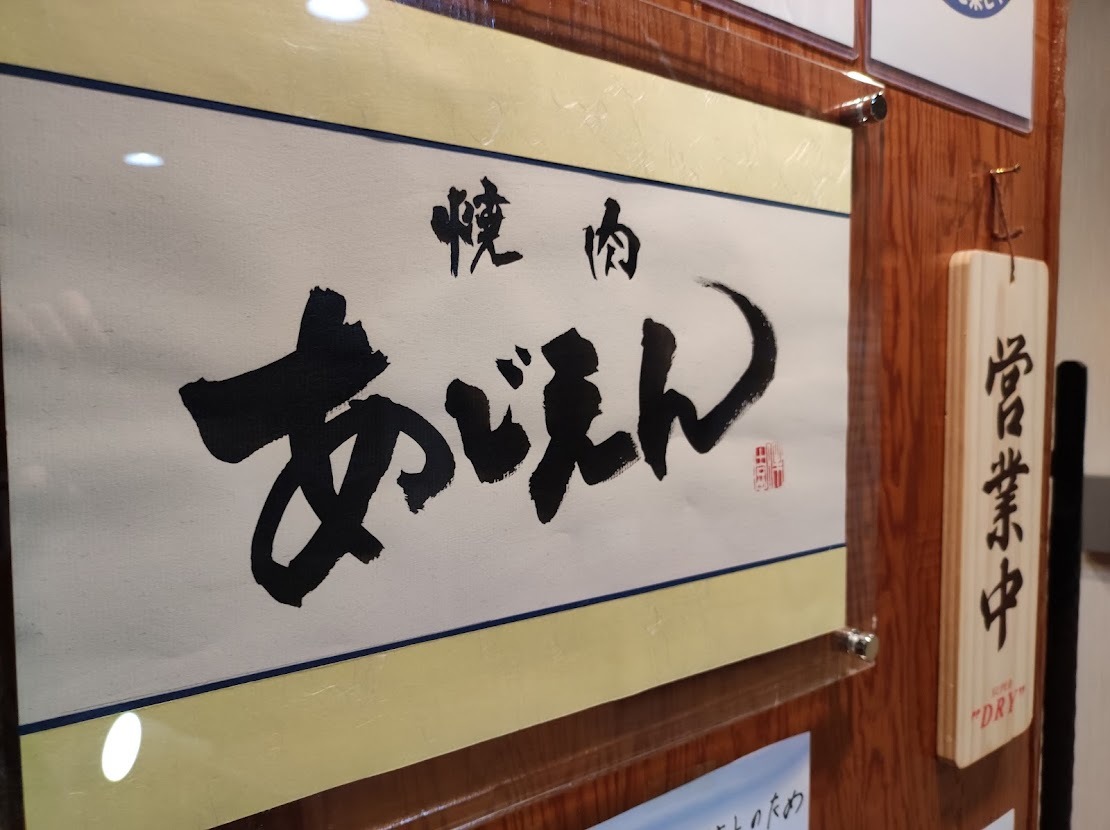 焼肉
あじえん
営業中
SUPER
"DRY"
のため